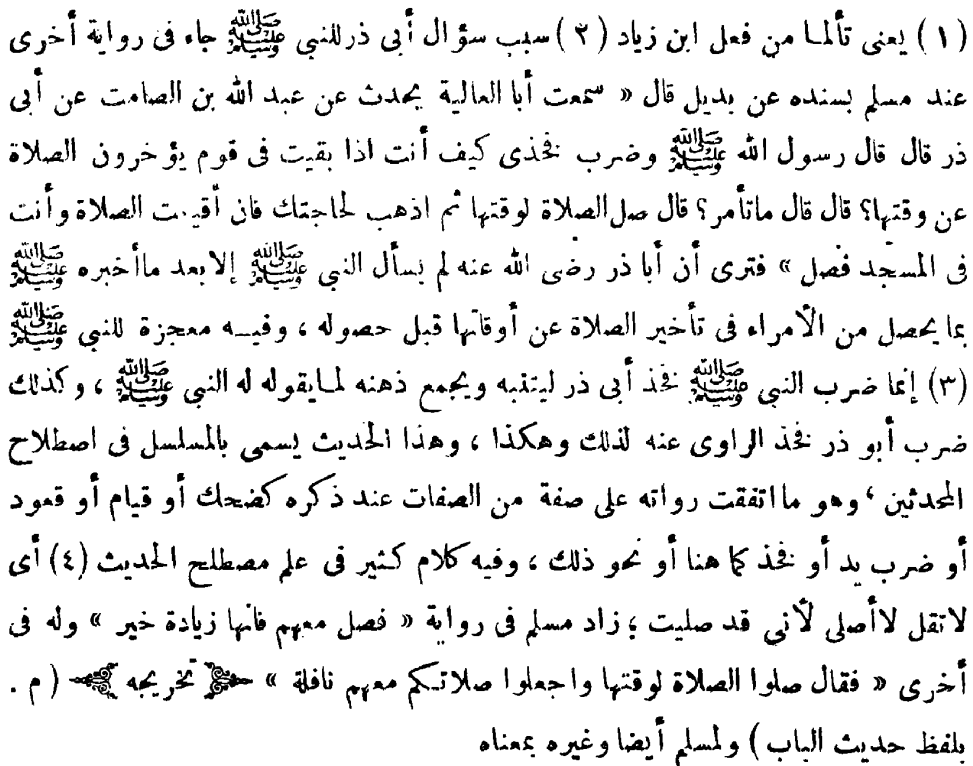 (١) يعنى تألمـا من فعل ابن زياد (٢) سبب سؤال أبى ذر للنبي ﷺ جاء فى رواية أخرى
عند مسلم بسنده عن بديل قال « سمعت أبا العالية يحدث عن عبد الله بن الصامت عن أبى
ذر قال قال رسول الله ﷺ وضرب فخذى كيف أنت اذا بقيت فى قوم يؤخرون الصلاة
عن وقتها؟ قال قال ماتأمر؟ قال صل الصلاة لوقتها ثم اذهب لحاجتك فان أقيمت الصلاة وأنت
فى المسجد فصل » فترى أن أبا ذر رضى الله عنه لم يسأل النبي ﷺ إلا بعد ماأخبره ﷺ
بما يحصل من الأمراء فى تأخير الصلاة عن أوقاتها قبل حصوله ، وفيـه معجزة للنبي ﷺ
(٣) إنما ضرب النبي ﷺ فخذ أبى ذر ليتنبه ويجمع ذهنه لمـايقوله له النبي ﷺ ، وكذلك
ضرب أبو ذر فخذ الراوى عنه لذلك وهكذا ، وهذا الحديث يسمى بالمسلسل فى اصطلاح
المحدثين ، وهو مااتفقت رواته على صفة من الصفات عند ذكره كضحك أو قيام أو قعود
أو ضرب يد أو فخذ كما هنا أو نحو ذلك ، وفيه كلام كثير فى علم مصطلح الحديث (٤) أى
لاتقل لاأصلى لأنى قد صليت ؛ زاد مسلم فى رواية « فصل معهم فانها زيادة خير » وله فى
أخرى « فقال صلوا الصلاة لوقتها واجعلوا صلاتـكم معهم نافلة » تخريجه (م .
بلفظ حديث الباب) ولمسلم أيضا وغيره بمعناه